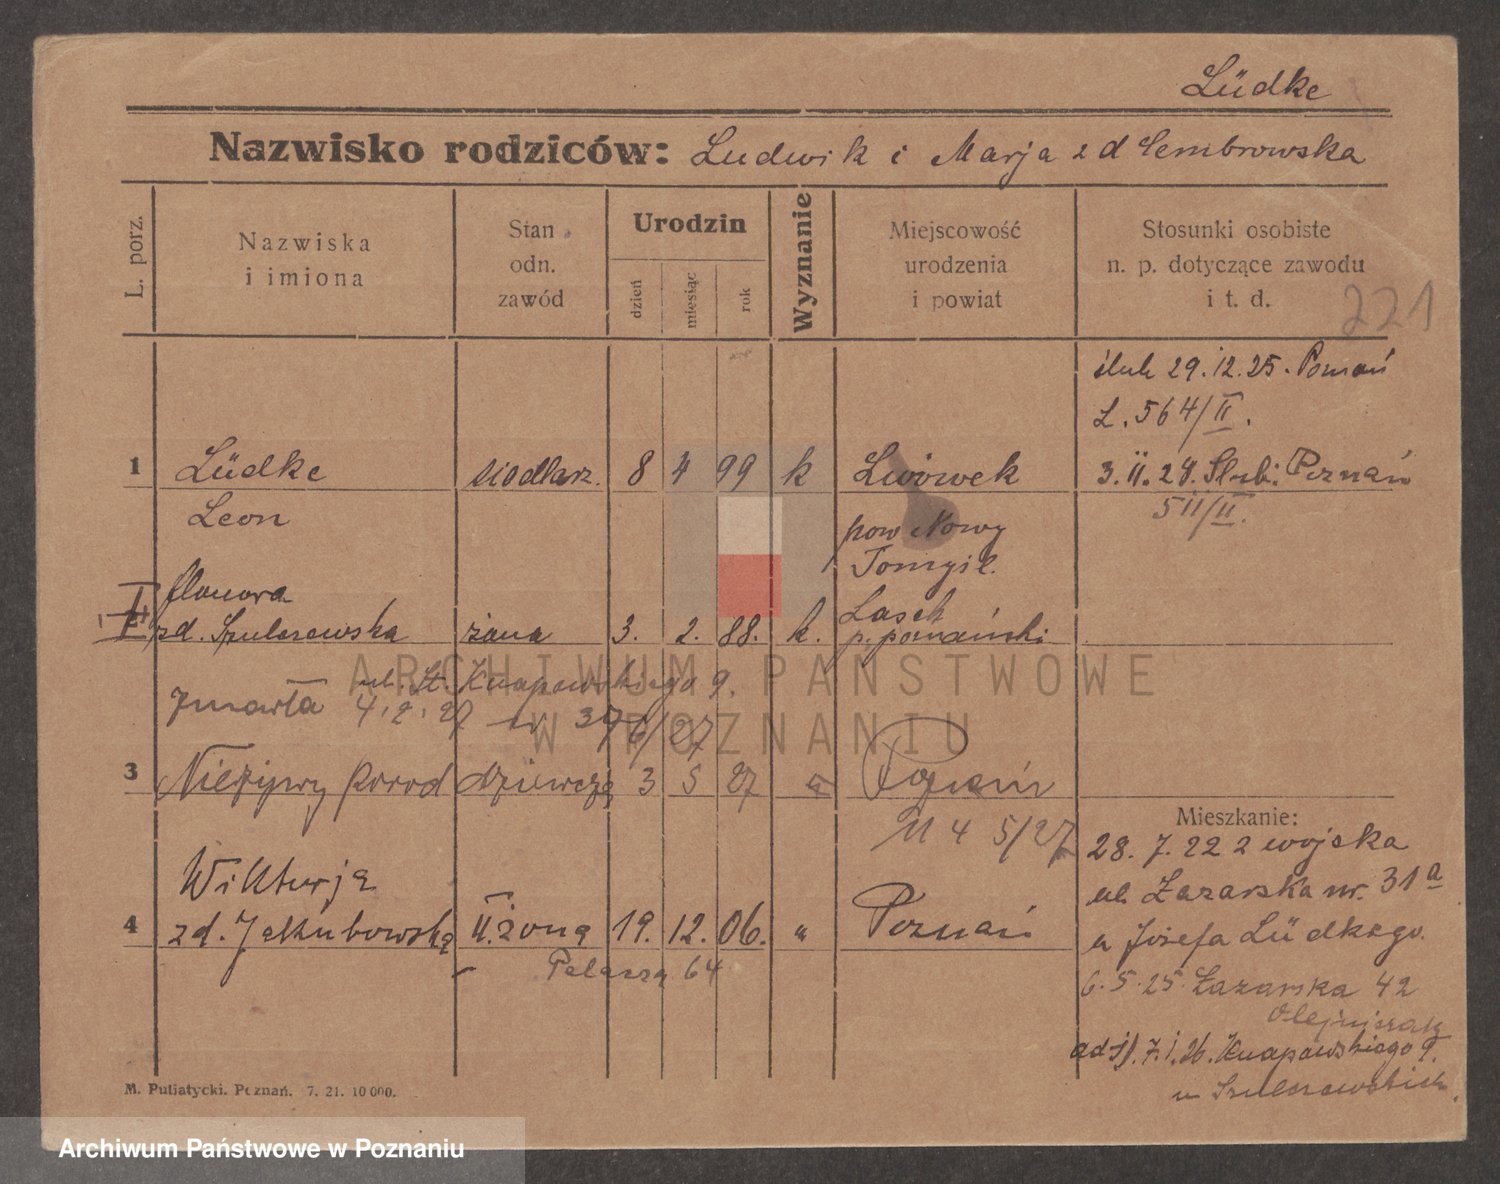 Lüdke
Nazwisko rodziców: Ludwik i Marja z d Sembrowska
L. porz.
Nazwiska
i imiona
Stan
odn.
zawód
Urodzin
dzień
miesiąc
rok
Wyznanie
Miejscowość
urodzenia
i powiat
Stosunki osobiste
n. p. dotyczące zawodu
i t. d.
221
ślub 29.12.25. Poznań
L. 564/II.
1 Lüdke siodlarz. 8 4 99 k Lwówek 3.II.28. Ślub: Poznań
Leon 511/II.
pow Nowy
Tomyśl.
I Elonora Lasek
zd. Szulczewska żona 3. 2. 88. k. p. poznański
ul. St. Knapowskiego 9.
zmarła 4.2.27 376/27
3 Nieżywy poród dziewczę 3 5 27 Poznań
M 4 5/27
Mieszkanie:
28. 7. 22 z wojska
ul. Łazarska nr. 31a
u Józefa Lüdkego.
Wiktorja
4 zd. Jakubowska II. żona 19. 12. 06. " Poznań
64
6.5.25. Łazarska 42
7.1.26. Knapowskiego 9.
u Szulczewskich.
M. Putiatycki. Poznań. 7. 21. 10 000.
ARCHIWUM PAŃSTWOWE
W POZNANIU
Archiwum Państwowe w Poznaniu